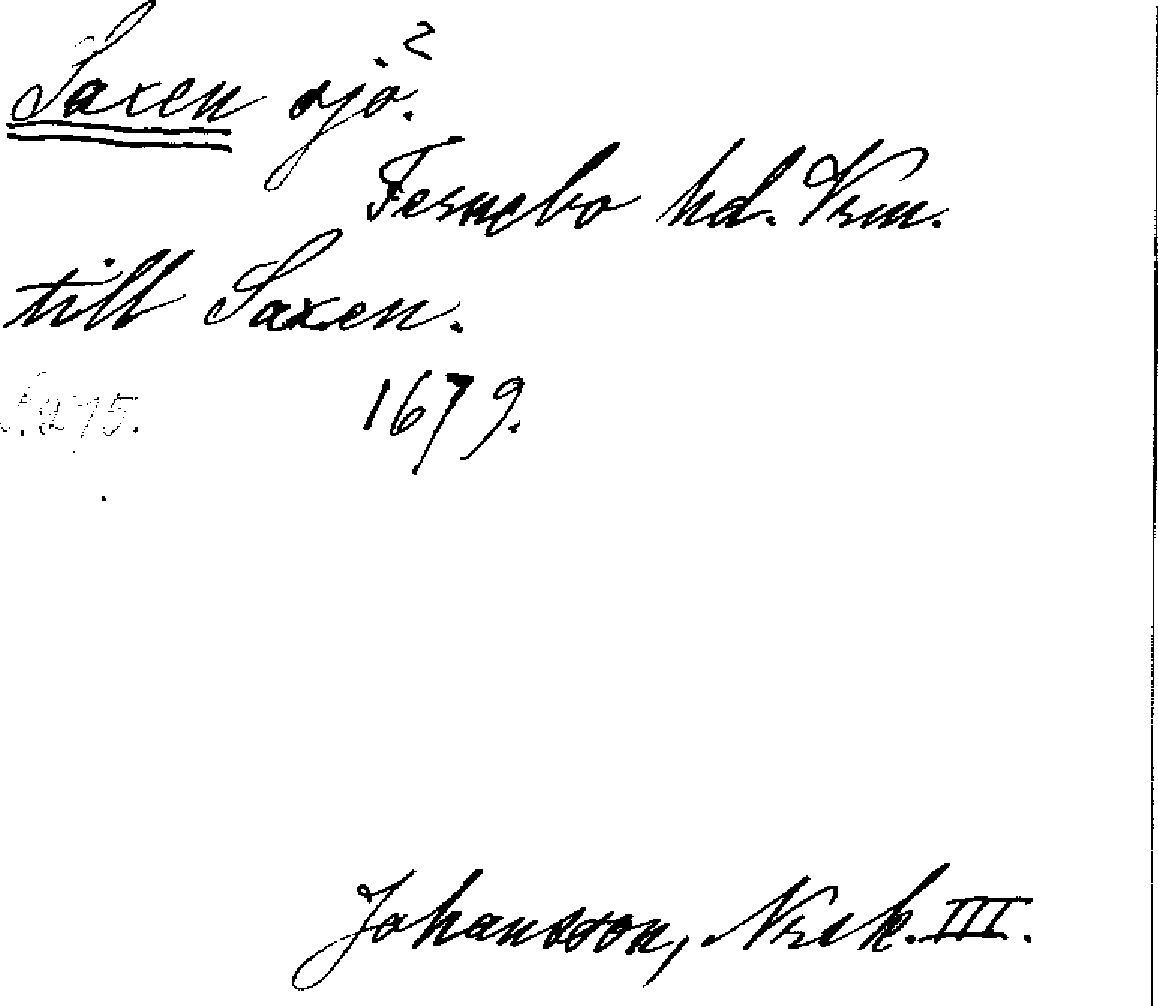 Saxen sjö.²
Fernebo hd. Vrm.
till Saxen.
S. 275. 1679.
Johansson, Nrsk. III.